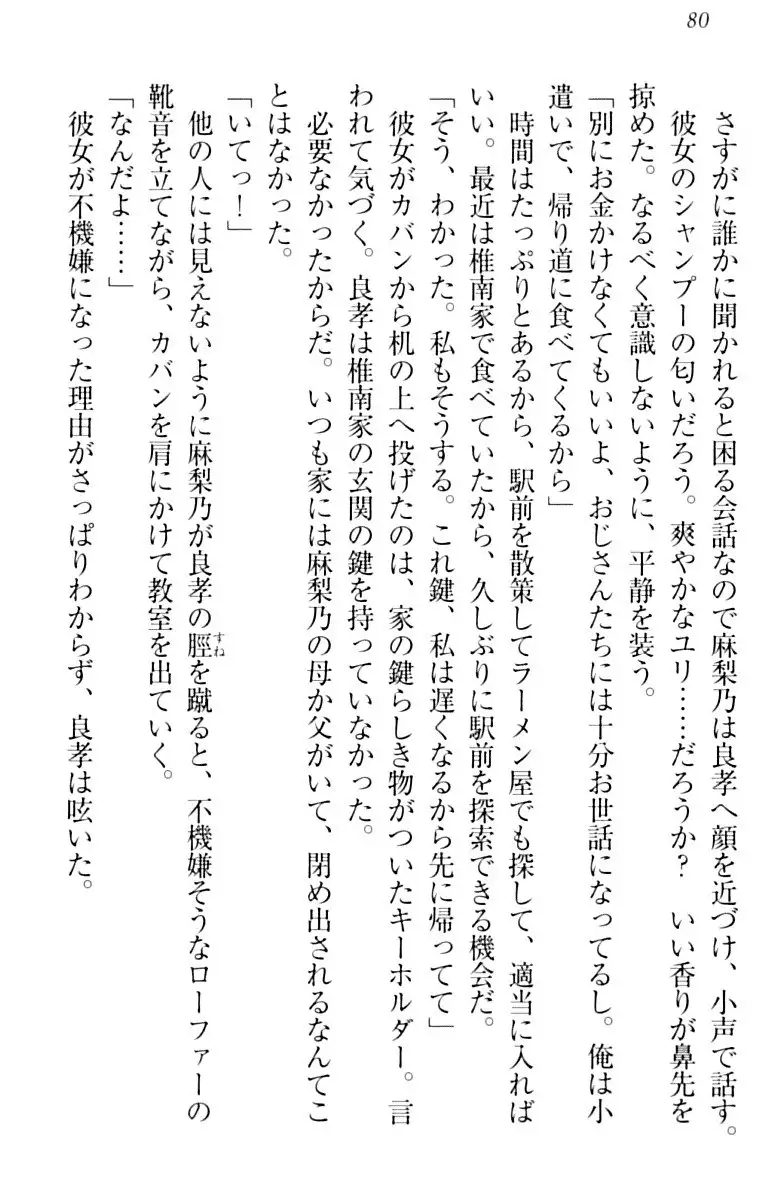 80
さすがに誰かに聞かれると困る会話なので麻梨乃は良孝へ顔を近づけ、小声で話す。
彼女のシャンプーの匂いだろう。爽やかなユリ……だろうか？　いい香りが鼻先を
掠めた。なるべく意識しないように、平静を装う。
「別にお金かけなくてもいいよ、おじさんたちには十分お世話になってるし。俺は小
遣いで、帰り道に食べてくるから」
時間はたっぷりとあるから、駅前を散策してラーメン屋でも探して、適当に入れば
いい。最近は椎南家で食べていたから、久しぶりに駅前を探索できる機会だ。
「そう、わかった。私もそうする。これ鍵、私は遅くなるから先に帰ってて」
彼女がカバンから机の上へ投げたのは、家の鍵らしき物がついたキーホルダー。言
われて気づく。良孝は椎南家の玄関の鍵を持っていなかった。
必要なかったからだ。いつも家には麻梨乃の母か父がいて、閉め出されるなんてこ
とはなかった。
「いてっ！」
他の人には見えないように麻梨乃が良孝の脛すねを蹴ると、不機嫌そうなローファーの
靴音を立てながら、カバンを肩にかけて教室を出ていく。
「なんだよ……」
彼女が不機嫌になった理由がさっぱりわからず、良孝は呟いた。